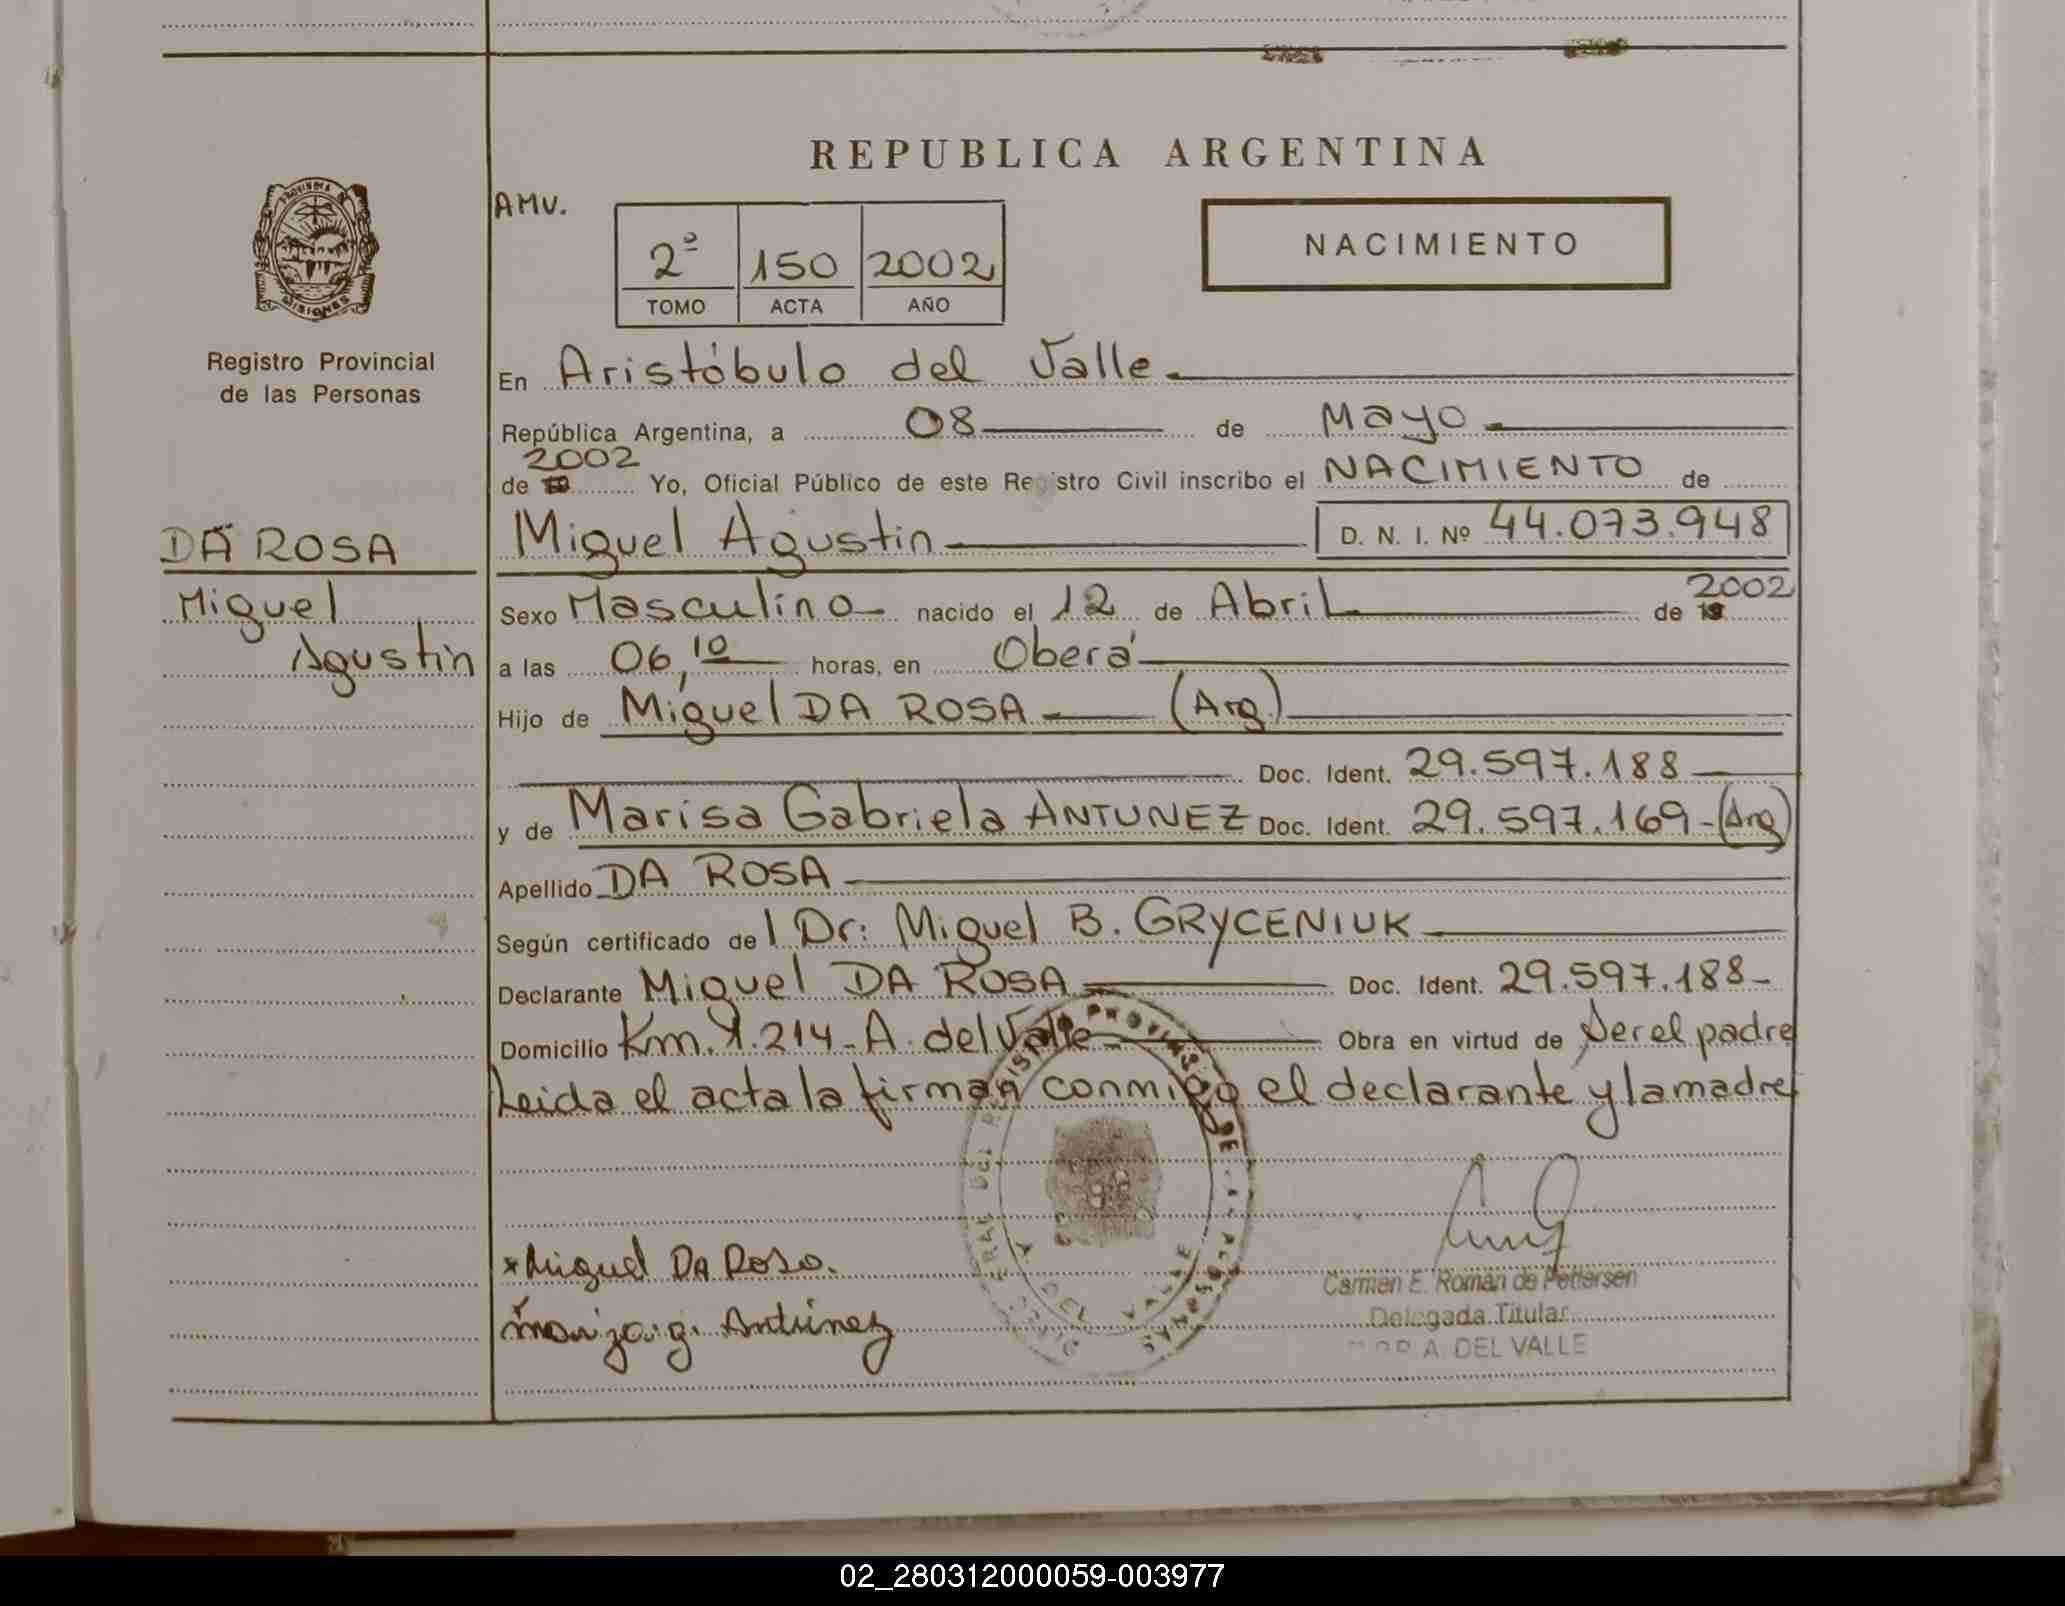 REPUBLICA ARGENTINA
AMV.
2º 150 2002
TOMO ACTA AÑO
NACIMIENTO
PROVINCIA DE
MISIONES
Registro Provincial
de las Personas
En Aristóbulo del Valle
República Argentina, a 08 de Mayo
2002
de 19 Yo, Oficial Público de este Registro Civil inscribo el NACIMIENTO de
DA ROSA
Miguel Agustin D. N. I. Nº 44.073.948
Miguel
Agustin
2002
Sexo Masculino nacido el 12 de Abril de 19
a las 06,10 horas, en Oberá
Hijo de Miguel DA ROSA (Arg.)
Doc. Ident. 29.597.188
y de Marisa Gabriela ANTUNEZ Doc. Ident. 29.597.169-(Arg)
Apellido DA ROSA
Según certificado del Dr: Miguel B. GRYCENIUK
Declarante Miguel DA ROSA Doc. Ident. 29.597.188-
Domicilio Km. 1.214-A. del Valle Obra en virtud de Ser el padre
Leida el acta la firman conmigo el declarante y la madre
x Miguel DA Rosa.
g. Antúnez
A. DEL VALLE
Carmen E. Román de Pettersen
Delegada Titular
A. DEL VALLE
02_280312000059-003977